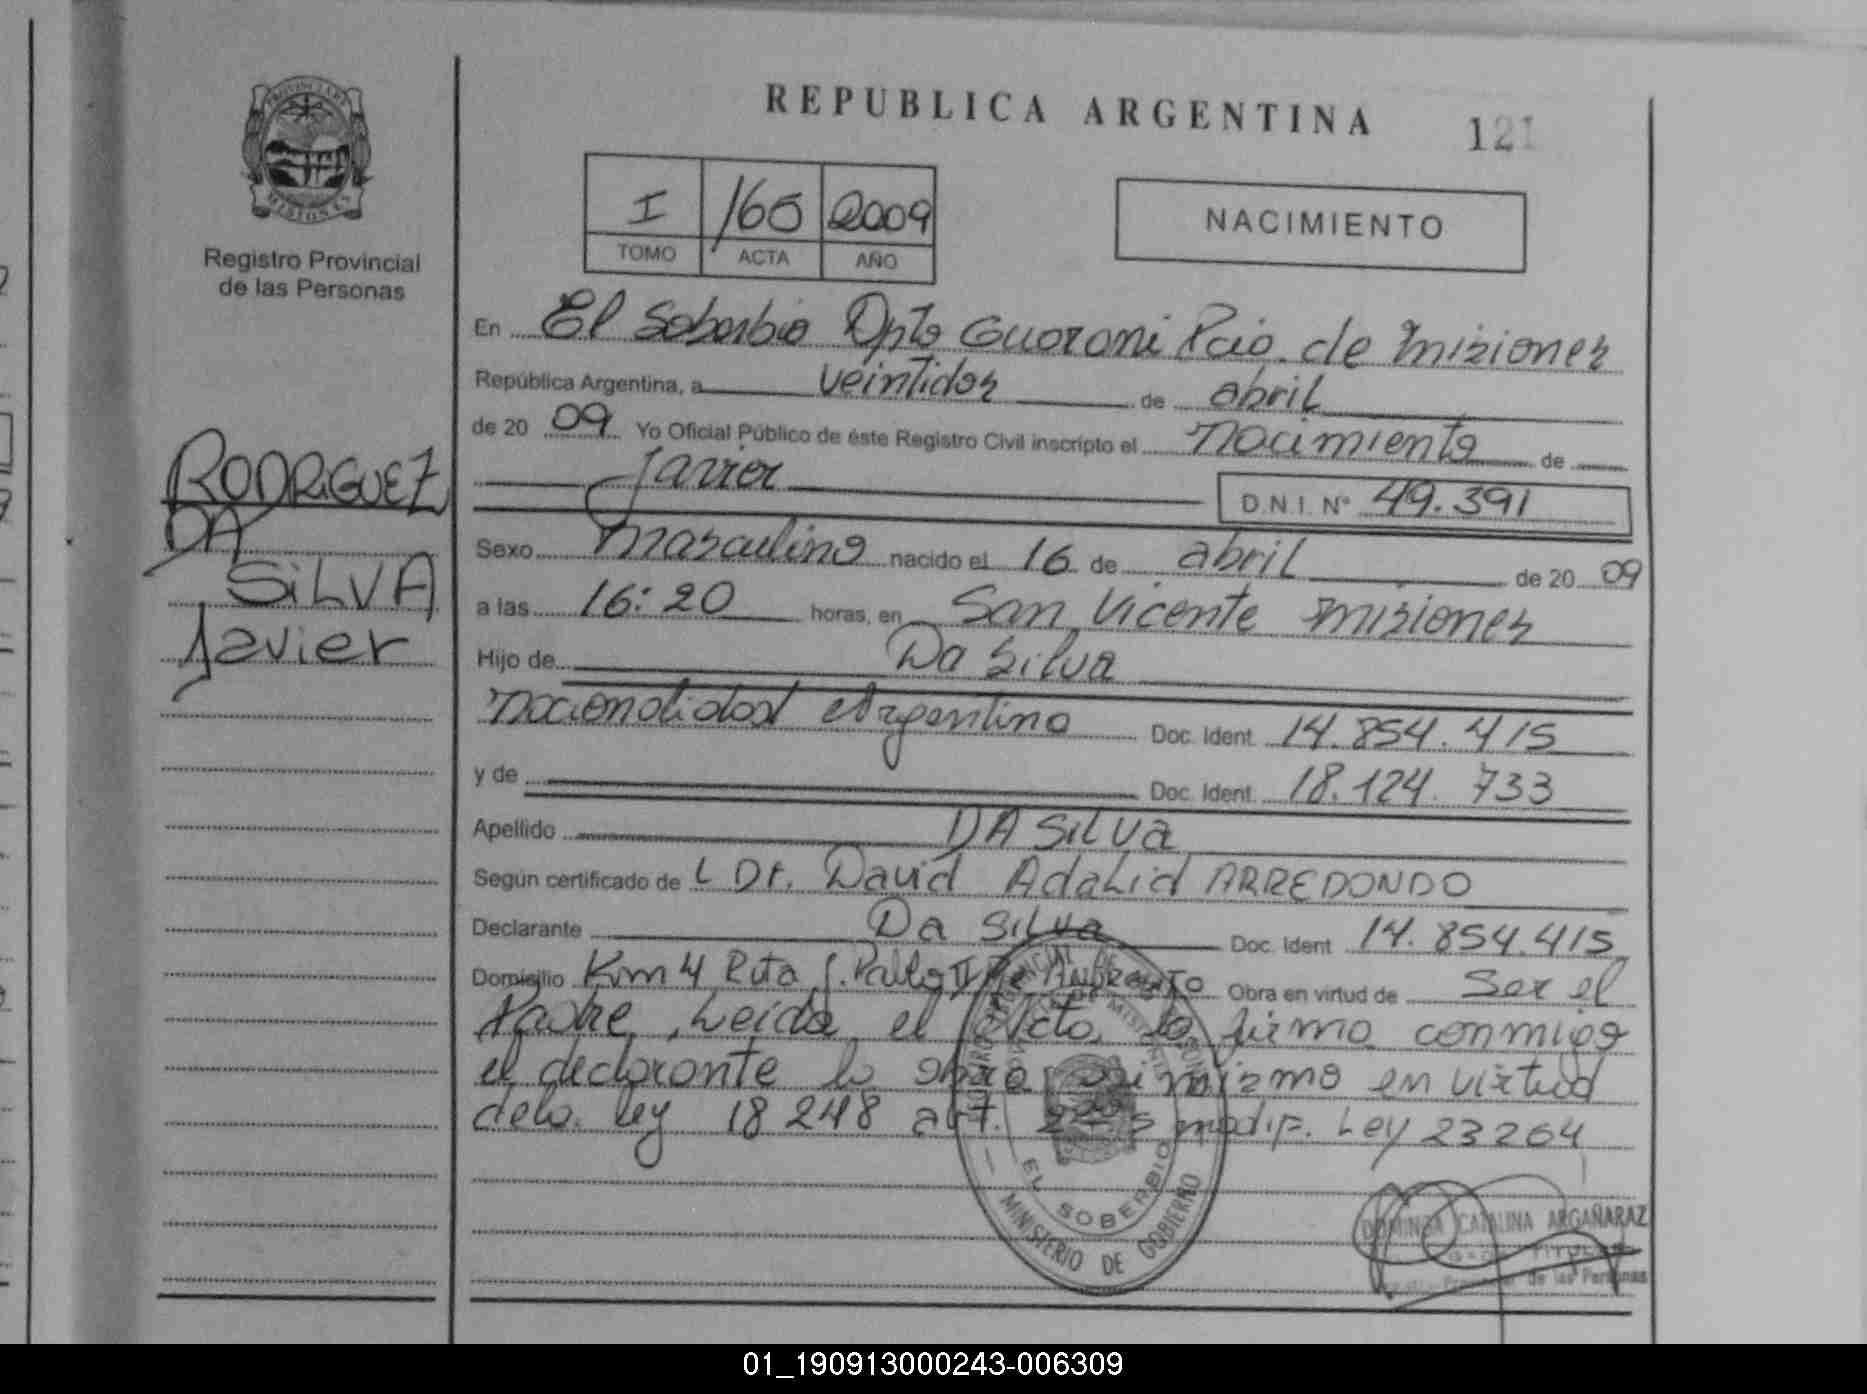 PROVINCIA DE
MISIONES
Registro Provincial
de las Personas
RODRIGUEZ
DA
SILVA
Javier
REPUBLICA ARGENTINA
121
I 165 2009
TOMO ACTA AÑO
NACIMIENTO
En El Soberbio Dpto Guarani Pcia. de Misiones
República Argentina, a veintidos de abril
de 20 09 Yo Oficial Público de éste Registro Civil inscripto el nacimiento de
Javier D.N.I. Nº 49.391
Sexo masculino nacido el 16 de abril de 20 09
a las 16:20 horas, en San Vicente Misiones
Hijo de Da Silva
nacionalidad Argentina Doc. Ident. 14.854.415
y de Doc. Ident. 18.124.733
Apellido DA SILVA
Según certificado de L Dr. David Adalid ARREDONDO
Declarante Da Silva Doc. Ident 14.854.415
Domicilio Km 4 Ruta J. Pablo II Obra en virtud de Ser el
Padre, Leida el Acta, la firma conmigo
el declarante lo asimismo en virtud
dela Ley 18248 art. modif. Ley 23264
EL SOBERBIO
MINISTERIO DE GOBIERNO
DOMINGA CATALINA ARGAÑARAZ
TITULAR
de las Personas
01_190913000243-006309